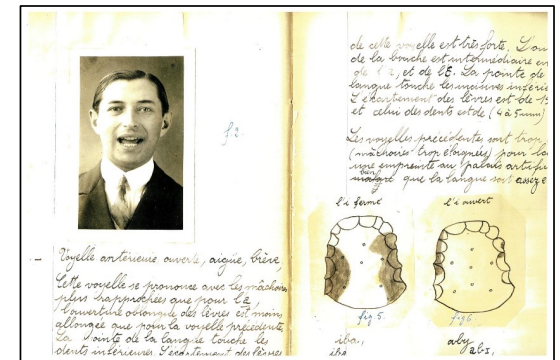 f2.
Voyelle antérieure ouverte, aigüe, brève,
Cette voyelle se prononce avec les mâchoires
plus rapprochées que pour l'
l'ouverture oblongue des lèvres est moins
allongée que pour la voyelle précédente
La pointe de la langue touche les
dents inférieures. L'écartement des lèvres
de cette voyelle est très forte. L'ou
de la bouche est intermédiaire en
de et de l'ε. La pointe de
langue touche les incisives inférie
L'écartement des lèvres est de
et celui des dents est de (4 à 5 mm)
Les voyelles précédente sont trop
(mâchoires trop éloignées) pour la
une empreinte au palais artifi
bien
que la langue soit assez e
l'i fermé
l'i ouvert
fig. 5.
fig 6
iba,
iba
aby
abi,